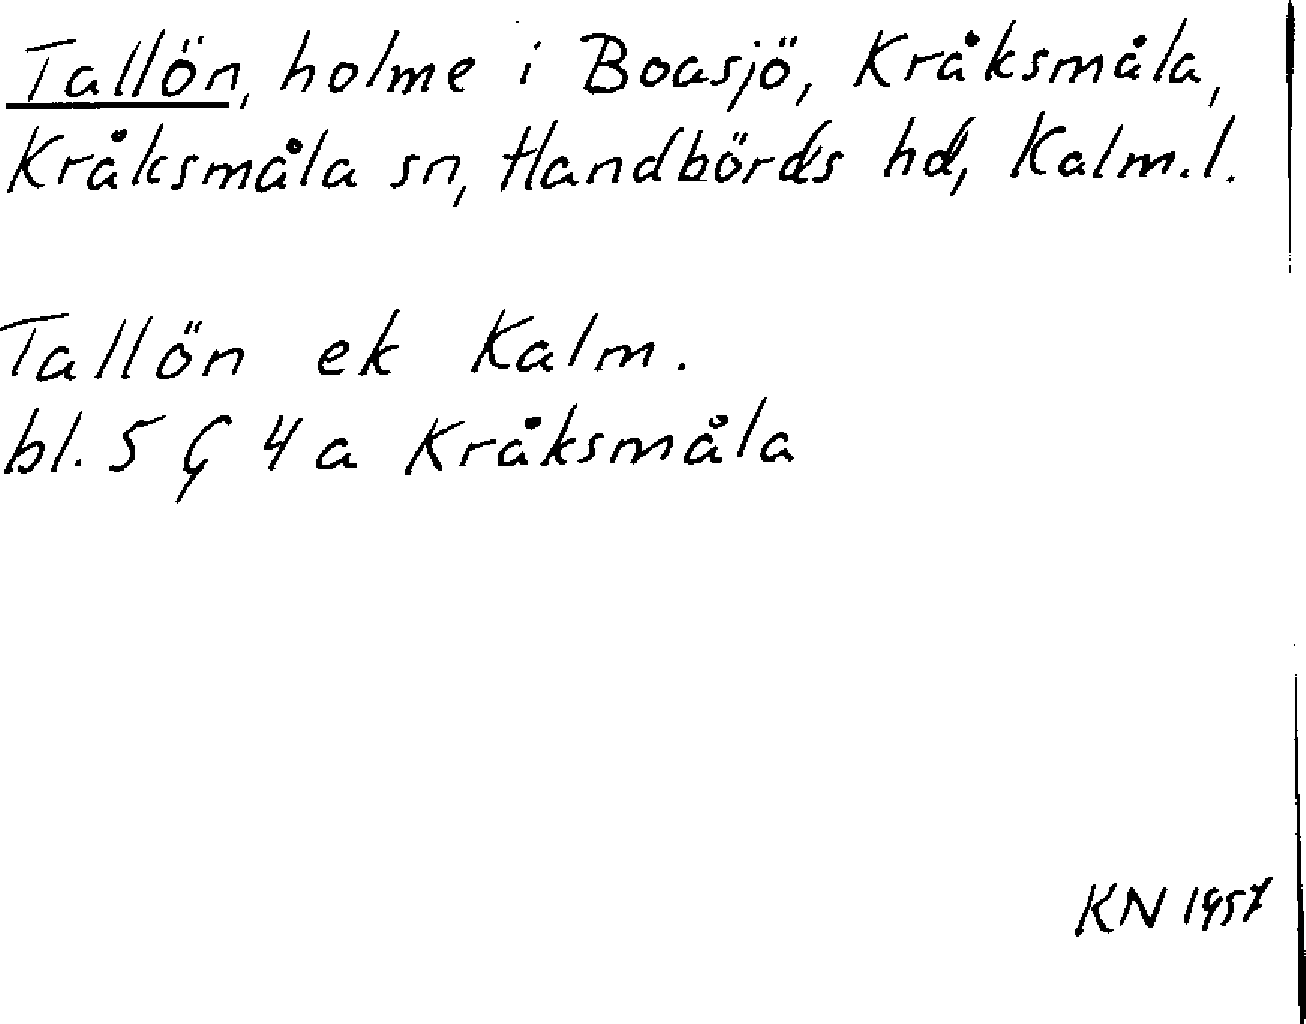 Tallön, holme i Boasjö, Kråksmåla,
Kråksmåla sn, Handbörds hd, Kalm.l.
Tallön ek Kalm.
bl. 5 G 4 a Kråksmåla
KN 1957